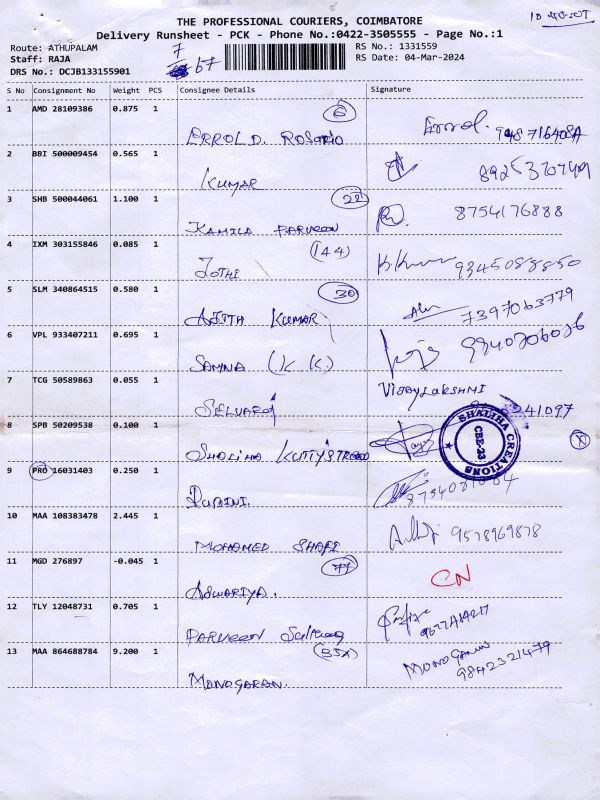 THE PROFESSIONAL COURIERS, COIMBATORE
Delivery Runsheet - PCK - Phone No.:0422-3505555 - Page No.:1
Route: ATHUPALAM 7 RS No.: 1331559
Staff: RAJA 67 RS Date: 04-Mar-2024
DRS No.: DCJB133155901
S No Consignment No Weight PCS Consignee Details Signature
1 AMD 28109386 0.875 1 6
ERROL D. ROSARIO Errol.
2 BBI 500009454 0.565 1
KUMAR
3 SHB 500044061 1.100 1
KAMILA PARVEEN 8754176888
4 IXM 303155846 0.085 1 (144)
JOTHI 9345088850
5 SLM 340864515 0.580 1 30
AJITH KUMAR 7397063779
6 VPL 933407211 0.695 1
(K K)
7 TCG 50589863 0.055 1 VIJAYLAKSHMI
SELVARAJ 41097
8 SPB 50209538 0.100 1 SHALIHA CREATIONS CBE-23
SHALIHA
9 PRO 16031403 0.250 1
10 MAA 108383478 2.445 1
MOHAMED SHAFI 9578969878
11 MGD 276897 -0.045 1 77
ASWARIYA. CN
12 TLY 12048731 0.705 1
PARVEEN
13 MAA 864688784 9.200 1
MONOGARAN. MONOGARAN
9842321479